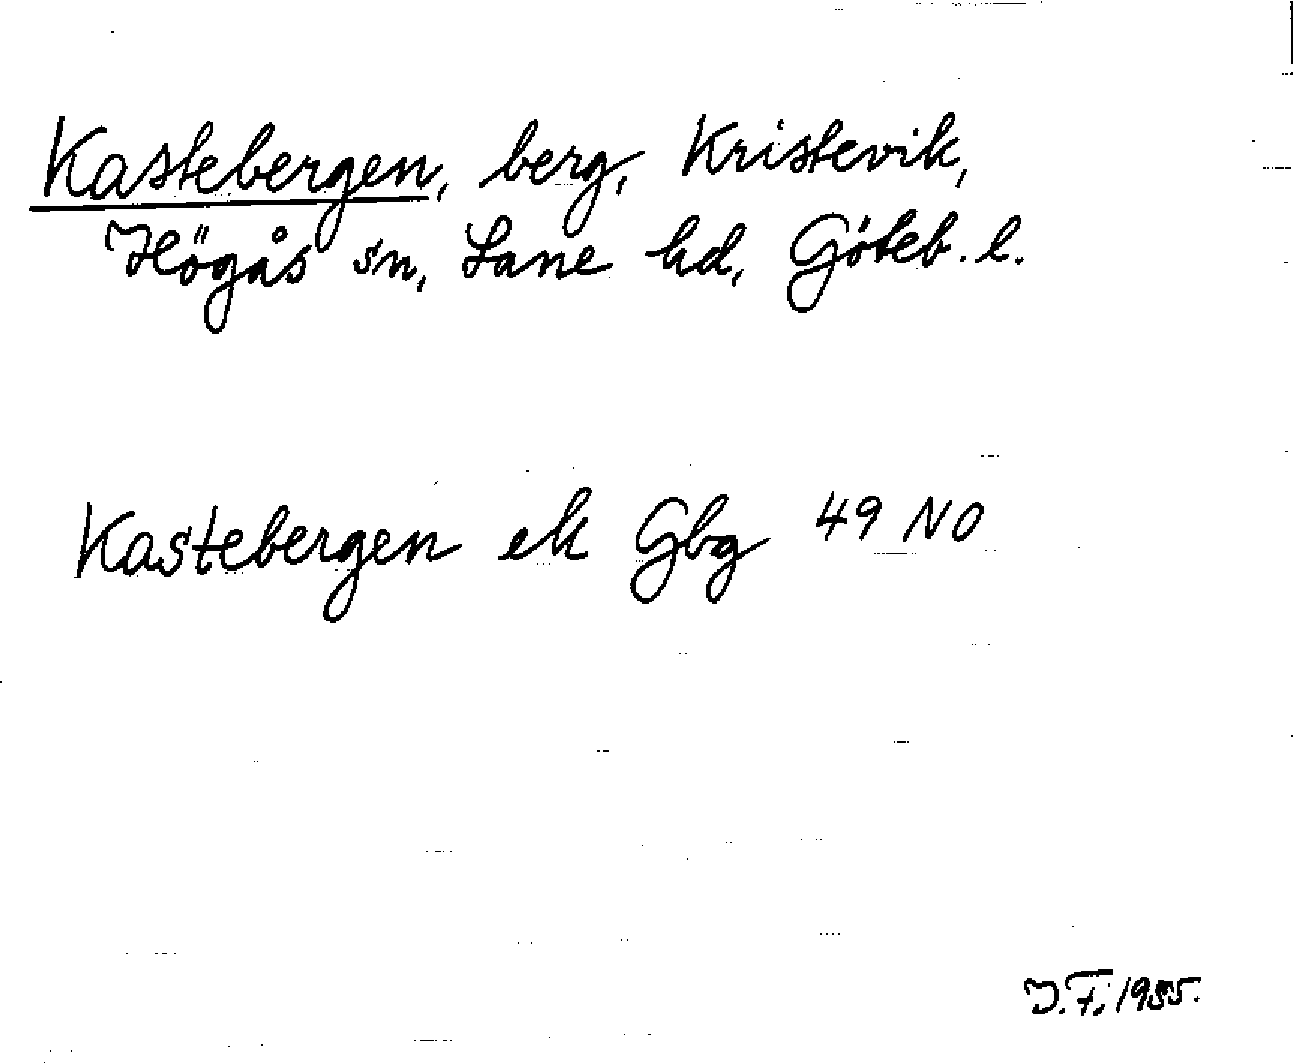 Kastebergen, berg, Kristevik,
Högås sn, Lane hd, Göteb. l.
Kastebergen ek Gbg 49 NO
J.F. 1935.